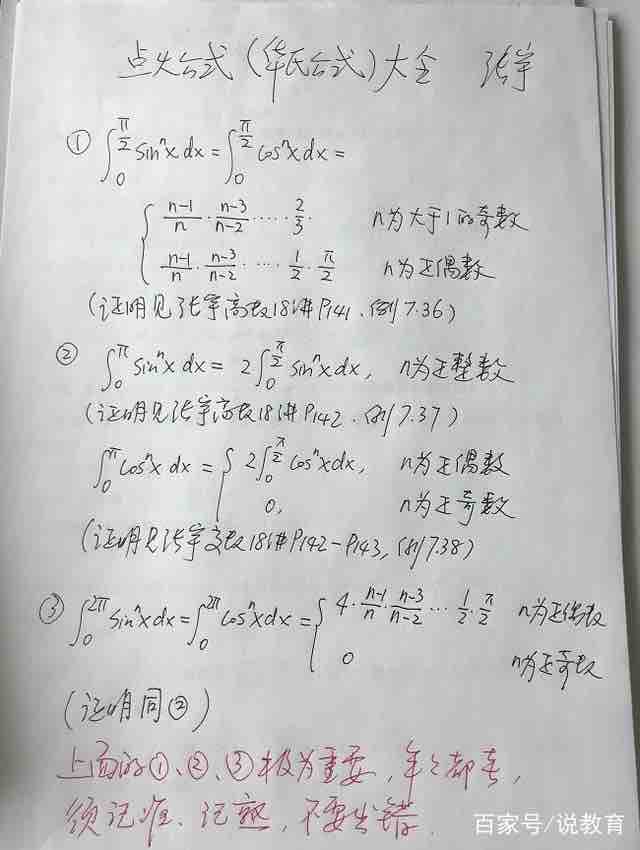 点火公式(华氏公式)大全 张宇
① ∫₀^{π/2} sinⁿx dx = ∫₀^{π/2} cosⁿx dx =
{ (n-1)/n · (n-3)/(n-2) · … · 2/3 · n为大于1的奇数
(n-1)/n · (n-3)/(n-2) · … · 1/2 · π/2 n为正偶数
(证明见张宇高数18讲P141、例7.36)
② ∫₀^π sinⁿx dx = 2∫₀^{π/2} sinⁿx dx, n为正整数
(证明见张宇高数18讲P142、例7.37)
∫₀^π cosⁿx dx = { 2∫₀^{π/2} cosⁿx dx, n为正偶数
0, n为正奇数
(证明见张宇高数18讲P142-P143, 例7.38)
③ ∫₀^{2π} sinⁿx dx = ∫₀^{2π} cosⁿx dx = { 4 · (n-1)/n · (n-3)/(n-2) … 1/2 · π/2 n为正偶数
0 n为正奇数
(证明同②)
上面的①、②、③极为重要,年年都考,
须记准、记熟,不要出错.
百家号/说教育